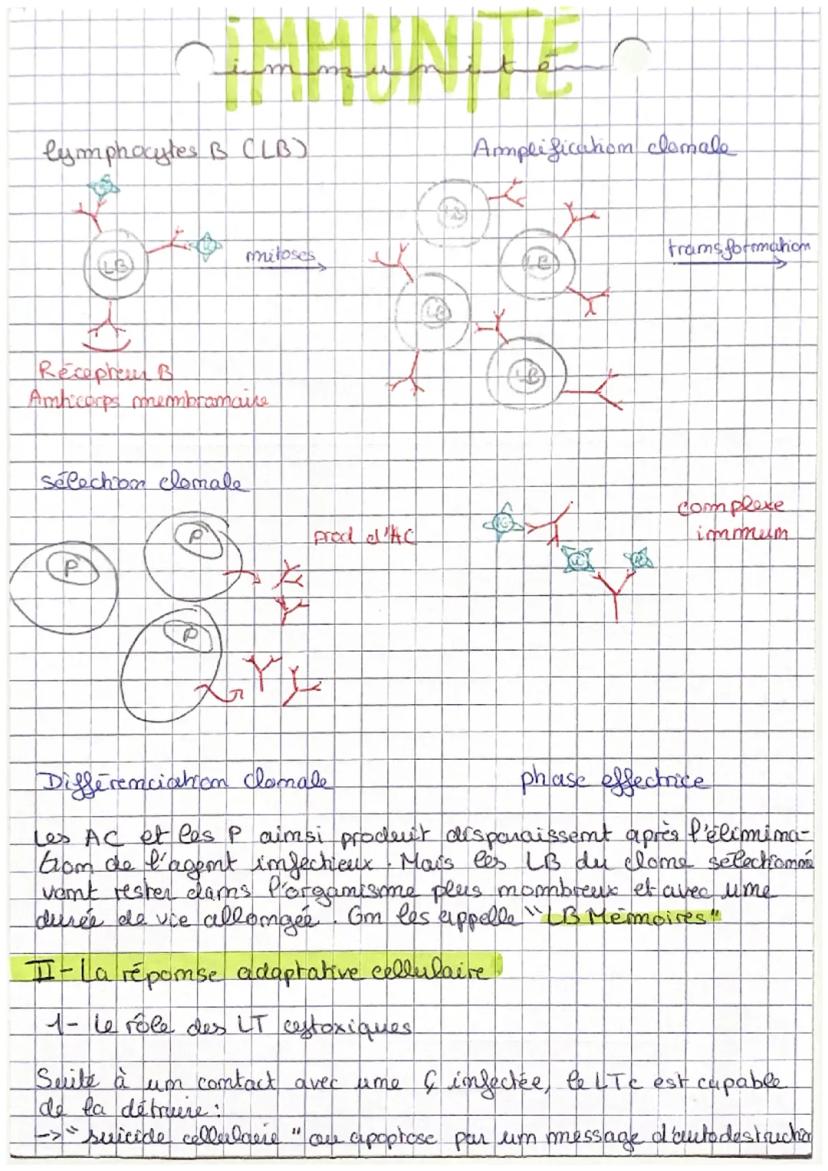 IMMUNITÉ
immunité
lymphocytes B (LB)
Amplification clonale
LB
mitoses
LB
LB
LB
LB
transformation
Récepteur B
Anticorps membranaire
sélection clonale
P
P
P
prod d'AC
complexe
immun
Différenciation clonale
phase effectrice
Les AC et les P ainsi produit disparaissent après l'élimina-
tion de l'agent infectieux. Mais les LB du clone sélectionné
vont rester dans l'organisme plus nombreux et avec une
durée de vie allongée. On les appelle "LB Mémoires"
II - La réponse adaptative cellulaire
1- Le rôle des LT cytoxiques
Suite à un contact avec une Ç infectée, le LTc est capable
de la détruire :
-> "suicide cellulaire" ou apoptose par un message d'autodestruction